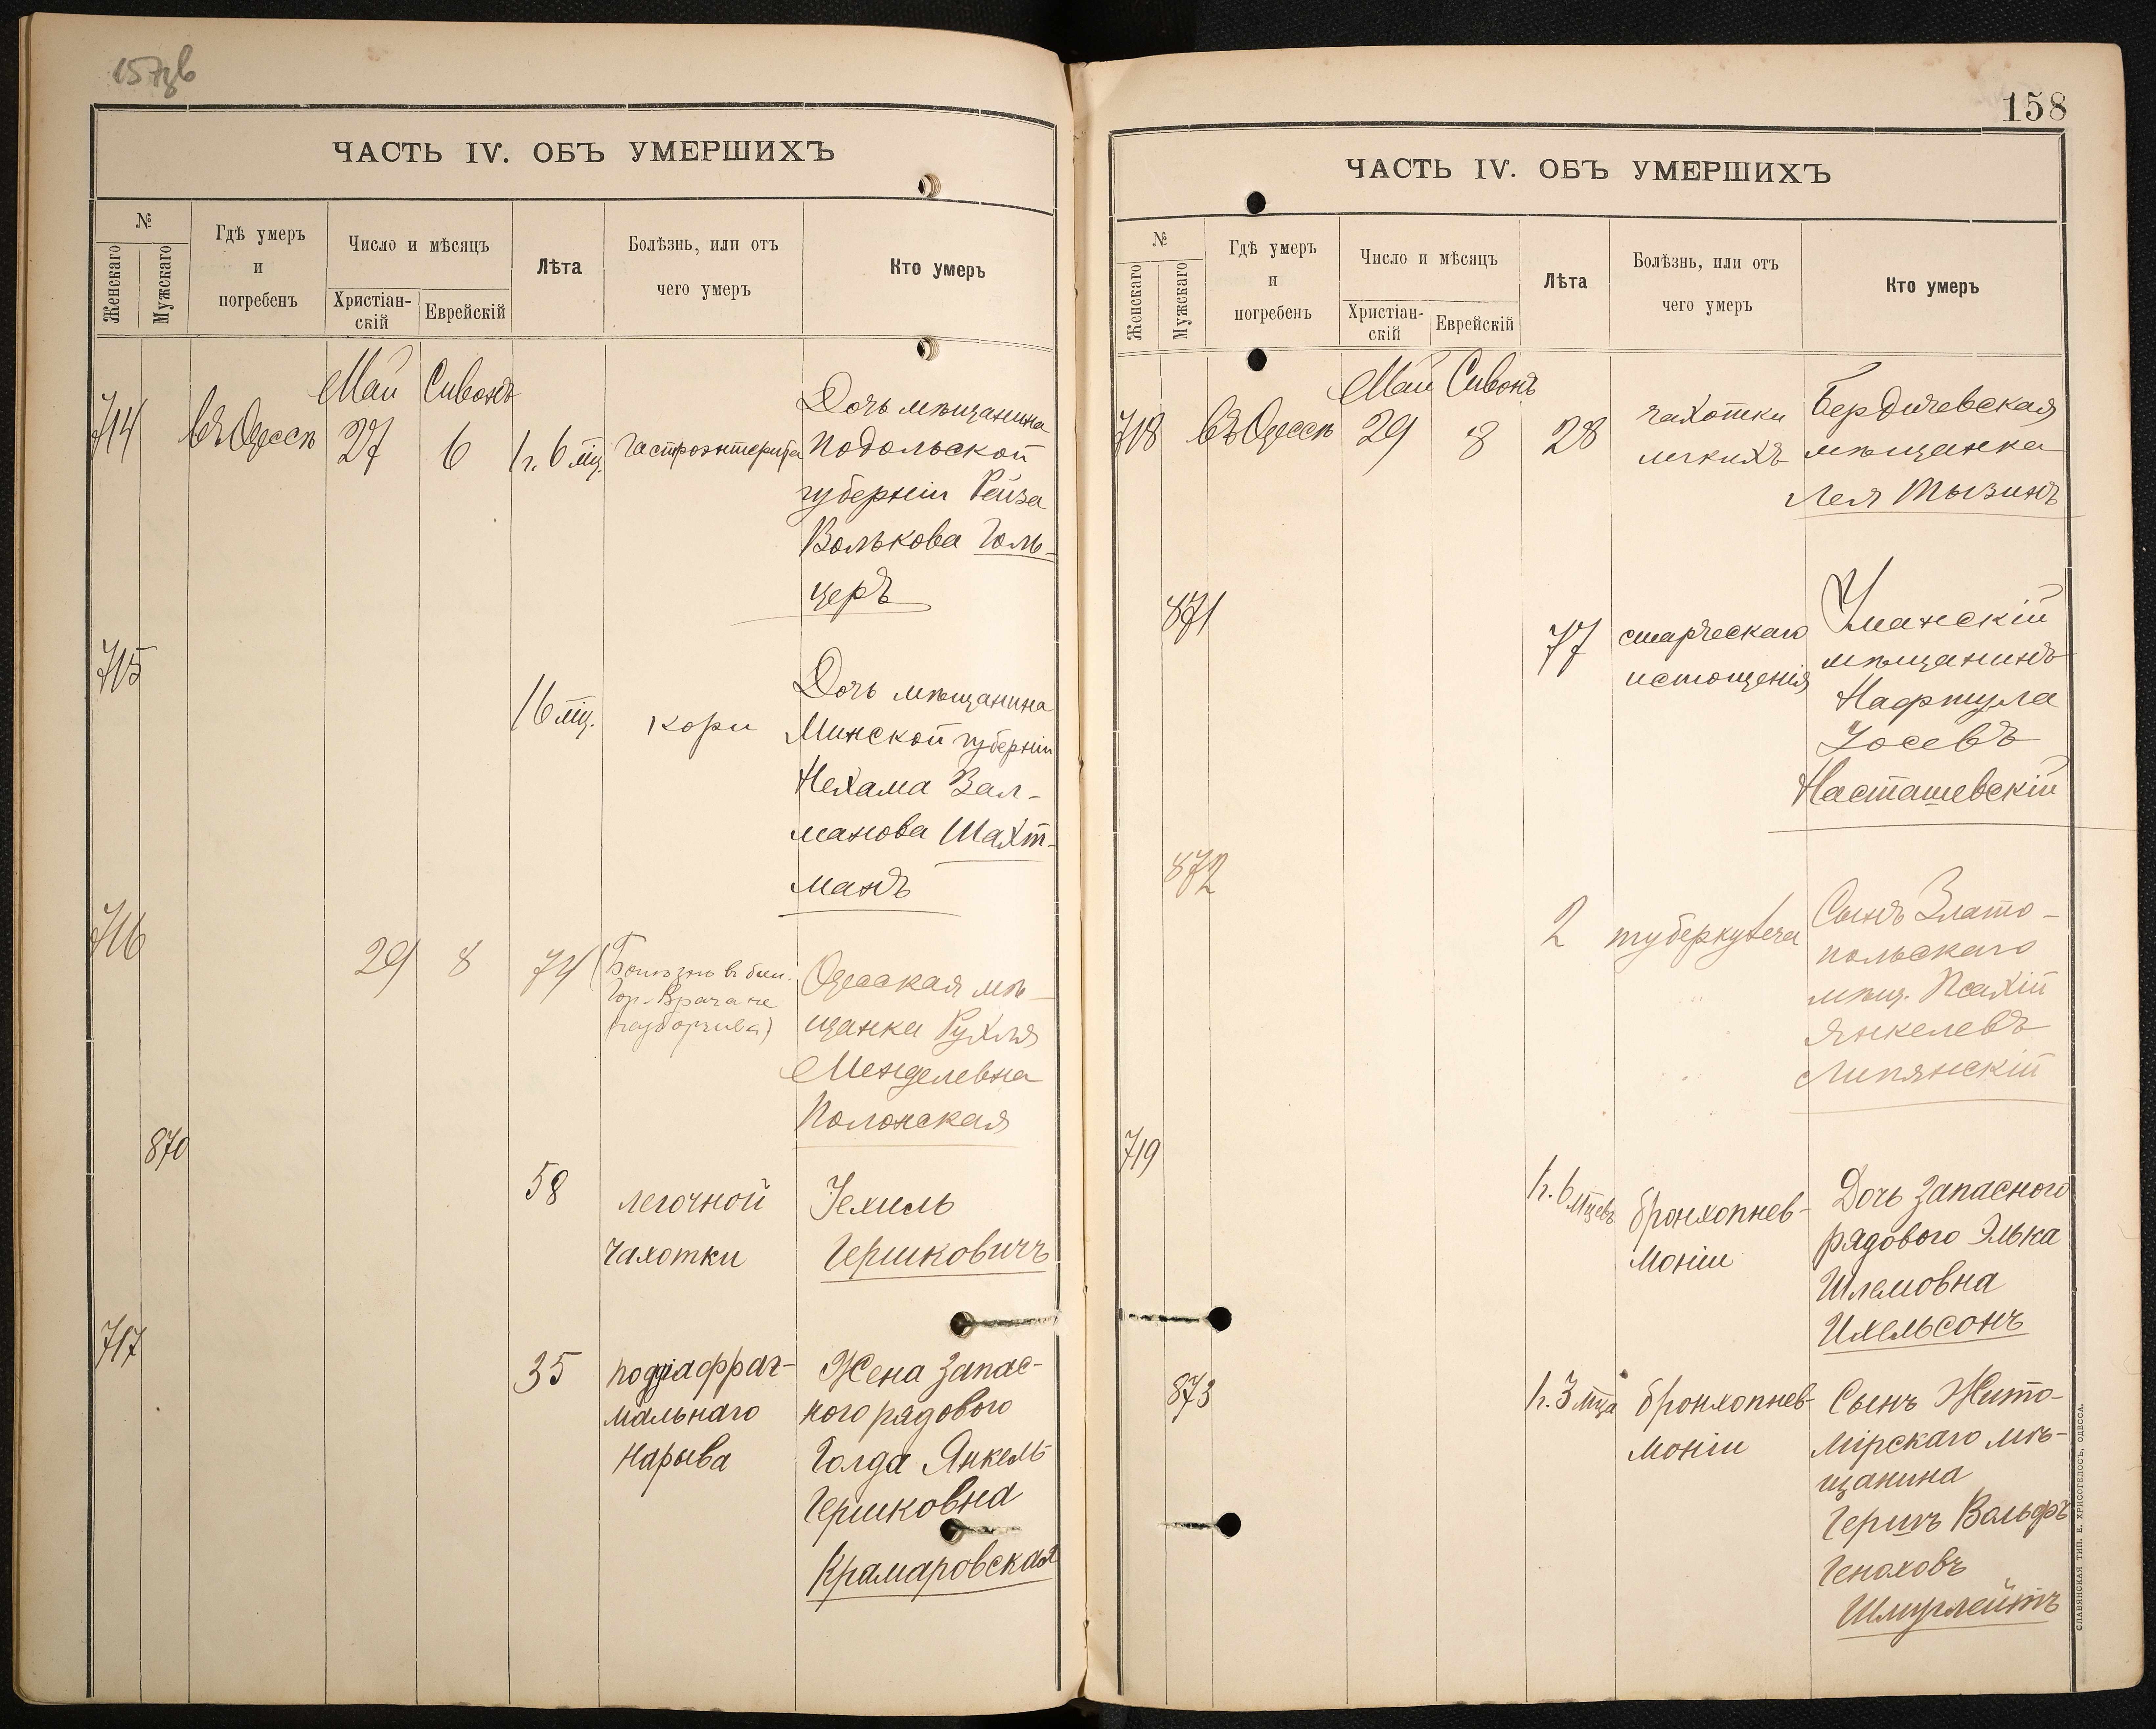 157зв
ЧАСТЬ IV. ОБЪ УМЕРШИХЪ
№
Женскаго
Мужскаго
Гдѣ умеръ
и
погребенъ
Число и мѣсяцъ
Христіан-
скій
Еврейскій
Лѣта
Болѣзнь, или отъ
чего умеръ
Кто умеръ
Май Сивонъ
714 въ Одессѣ 27 6 1 г. 6 мц. Гастроэнтерита
Дочь мѣщанина
Подольской
губерніи Рейза
Волькова Голь-
церъ
715
16 мц. кори
Дочь мѣщанина
Минской губерніи
Нехама Зал-
манова Шахт-
манъ
716
29 8 74
(Болѣзнь в бил.
Гор. Врача не
разборчива)
Одесская мѣ-
щанка Рухля
Менделевна
Полонская
870
58
легочной
чахотки
Іехиль
Гершковичъ
717
35
поддіафраг-
мальнаго
нарыва
Жена запас-
ного рядового
Голда Янкель
Гершковна
Крамаровская
158
ЧАСТЬ IV. ОБЪ УМЕРШИХЪ
№
Женскаго
Мужскаго
Гдѣ умеръ
и
погребенъ
Число и мѣсяцъ
Христіан-
скій
Еврейскій
Лѣта
Болѣзнь, или отъ
чего умеръ
Кто умеръ
Май Сивонъ
718 въ Одессѣ 29 8 28
чахотки
легкихъ
Бердичевская
мѣщанка
Лея Тызинъ
871
77
старческаго
истощенія
Уманскій
мѣщанинъ
Нафтула
Іосевъ
Насташевскій
872
2
туберкулеза
Сынъ Злато-
польскаго
мѣщ. Псахій
Янкелевъ
Липянскій
719
1 г. 6 мцевъ
бронхопнев-
моніи
Дочь запасного
рядового Элька
Шлемовна
Ихельсонъ
873
1 г. 3 мца
бронхопнев-
моніи
Сынъ Жито-
мірскаго мѣ-
щанина
Гершъ Вольфъ
Геноховъ
Шмуглейтъ
СЛАВЯНСКАЯ ТИП. Е. ХРИСОГЕЛОСЪ, ОДЕССА.